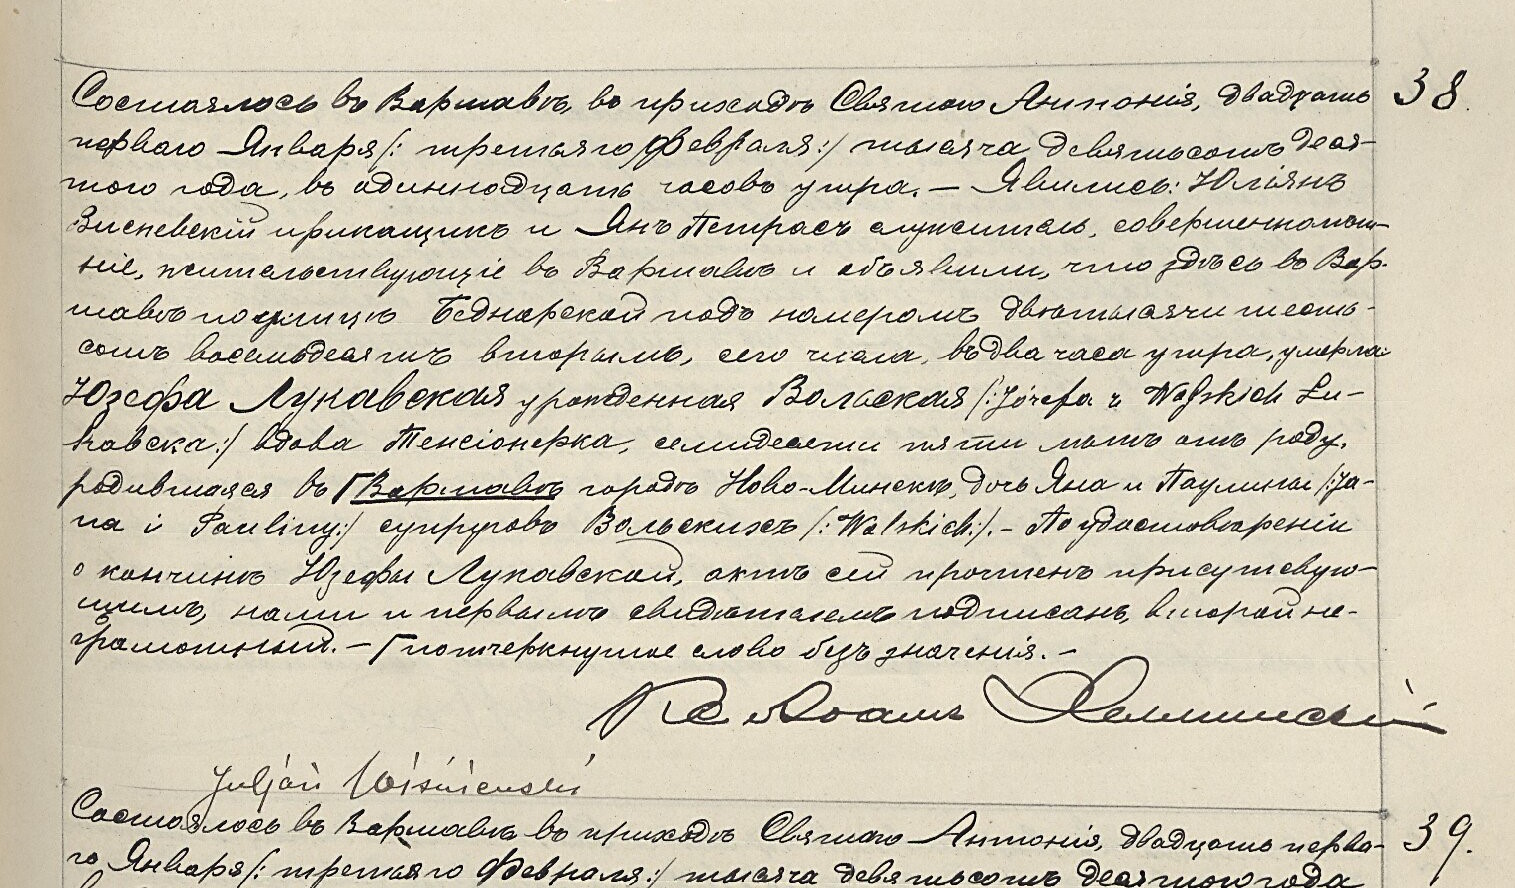 Состоялось въ Варшавѣ, въ приходѣ Святаго Антонія, двадцать 38.
перваго Января /: третьяго Февраля :/ тысяча девятьсотъ деся-
таго года, въ одиннадцать часовъ утра. — Явились: Юліянъ
Висневскій прикащикъ и Янъ Петрасъ служитель, совершеннолѣт-
ніе, жительствующіе въ Варшавѣ и объявили, что здѣсь въ Вар-
шавѣ по улицѣ Беднарской подъ номеромъ двѣ тысячи шесть-
сотъ восемьдесятъ вторымъ, сего числа, въ два часа утра, умерла
Юзефа Лукавская урожденная Вольская /: Józefa z Wolskich Łu-
kawska :/ вдова Пенсіонерка, семидесяти пяти лѣтъ отъ роду,
родившаяся въ Г Варшавѣ городѣ Ново-Минскѣ, дочь Яна и Паулины /: Ja-
na i Pauliny :/ супруговъ Вольскихъ /: Wolskich :/. — По удостовѣреніи
о кончинѣ Юзефы Лукавской, актъ сей прочтенъ присутствую-
щимъ, нами и первымъ свидѣтелемъ подписанъ, второй не-
грамотный. — Г подчеркнутое слово безъ значенія. —
Кс Адамъ
Juljan Wiśniewski
Состоялось въ Варшавѣ въ приходѣ Святаго Антонія, двадцать перва- 39.
го Января /: третьяго Февраля :/ тысяча девятьсотъ десятого года